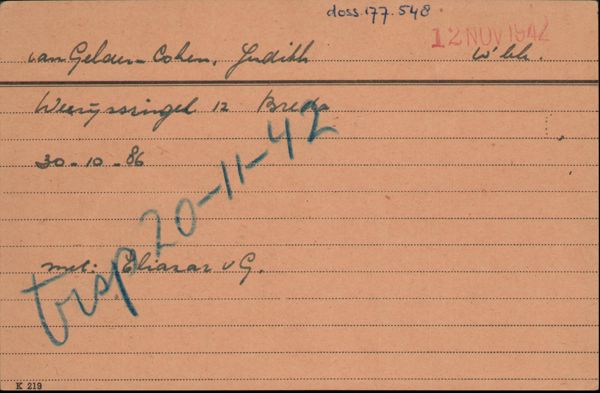 doss. 177.548
12 NOV 1942
van Gelder-Cohen, Judith W'bk.
Weerijssingel 12 Breda
30-10-86
trsp 20-11-42
met: Eliazar v G.
K 213